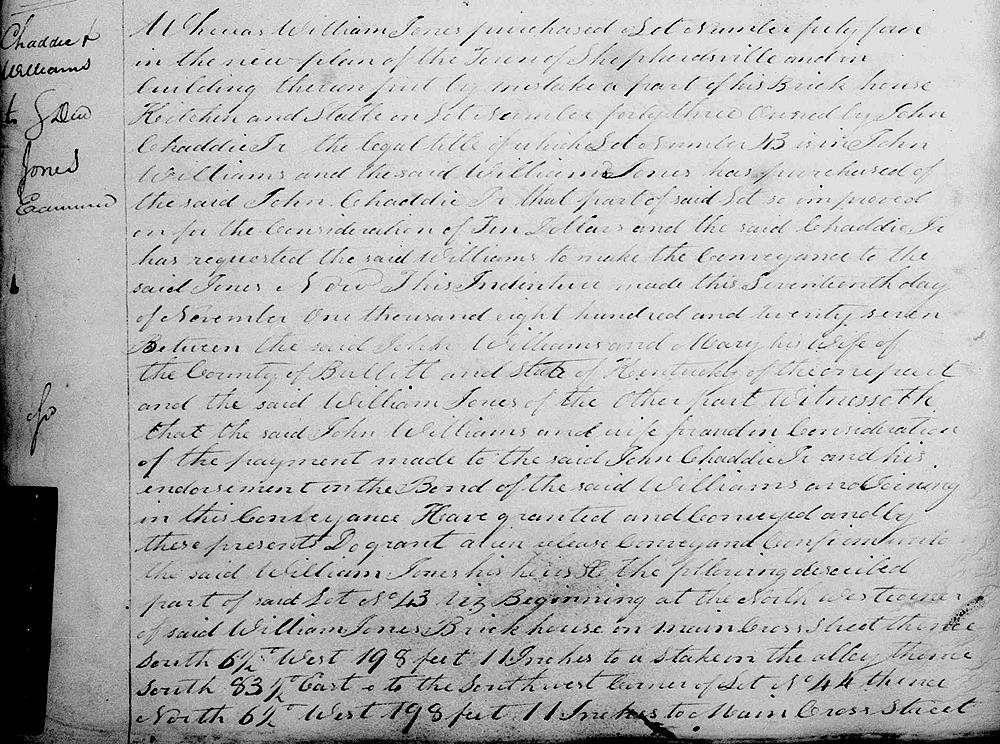 Chaddic &
Williams
to } Deed
Jones
Examined
Whereas William Jones purchased Lot Number forty four
in the new plan of the Town of Shepherdsville and in
building thereon put by mistake a part of his Brick house
Kitchen and Stable on Lot Number forty three Owned by John
Chaddic Jr the legal title of which Lot Number 43 is in John
Williams and the said William Jones has purchased of
the said John Chaddic Jr that part of said Lot so improved
on for the Consideration of Ten Dollars and the said Chaddic Jr
has requested the said Williams to make the Conveyance to the
said Jones Now This Indenture made this Seventeenth day
of November One thousand eight hundred and twenty seven
Between the said John Williams and Mary his Wife of
the County of Bullitt and State of Kentucky of the one part
and the said William Jones of the Other part Witnesseth
that the said John Williams and wife for and in Consideration
of the payment made to the said John Chaddic Jr and his
endorsement on the Bond of the said Williams and Joining
in this Conveyance Have granted and Conveyed and by
these presents Do grant alien release Convey and Confirm unto
the said William Jones his heirs &c the following described
part of said Lot No 43 Viz Beginning at the North West corner
of said William Jones Brick house on main Cross Street thence
South 6½° West 198 feet 11 Inches to a stake on the alley thence
South 83½° East to the Southwest Corner of Lot No 44 thence
North 6½° West 198 feet 11 Inches to Main Cross Street